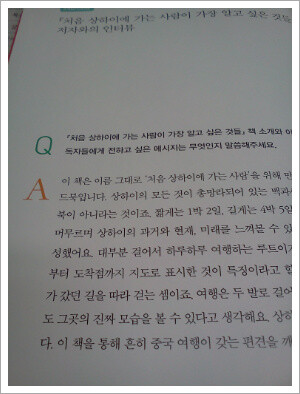 『처음 상하이에 가는 사람이 가장 알고 싶은 것들
저자와의 인터뷰
Q 『처음 상하이에 가는 사람이 가장 알고 싶은 것들』 책 소개와 이
독자들에게 전하고 싶은 메시지는 무엇인지 말씀해주세요.
A 이 책은 이름 그대로 '처음 상하이에 가는 사람'을 위해 만
드북입니다. 상하이의 모든 것이 총망라되어 있는 백과
북이 아니라는 것이죠. 짧게는 1박 2일, 길게는 4박 5일
머무르며 상하이의 과거와 현재, 미래를 느껴볼 수 있
성했어요. 대부분 걸어서 하루하루 여행하는 루트이
부터 도착점까지 지도로 표시한 것이 특징이라고 할
가 갔던 길을 따라 걷는 셈이죠. 여행은 두 발로 걸어
도 그곳의 진짜 모습을 볼 수 있다고 생각해요. 상하
다. 이 책을 통해 흔히 중국 여행이 갖는 편견을 깨